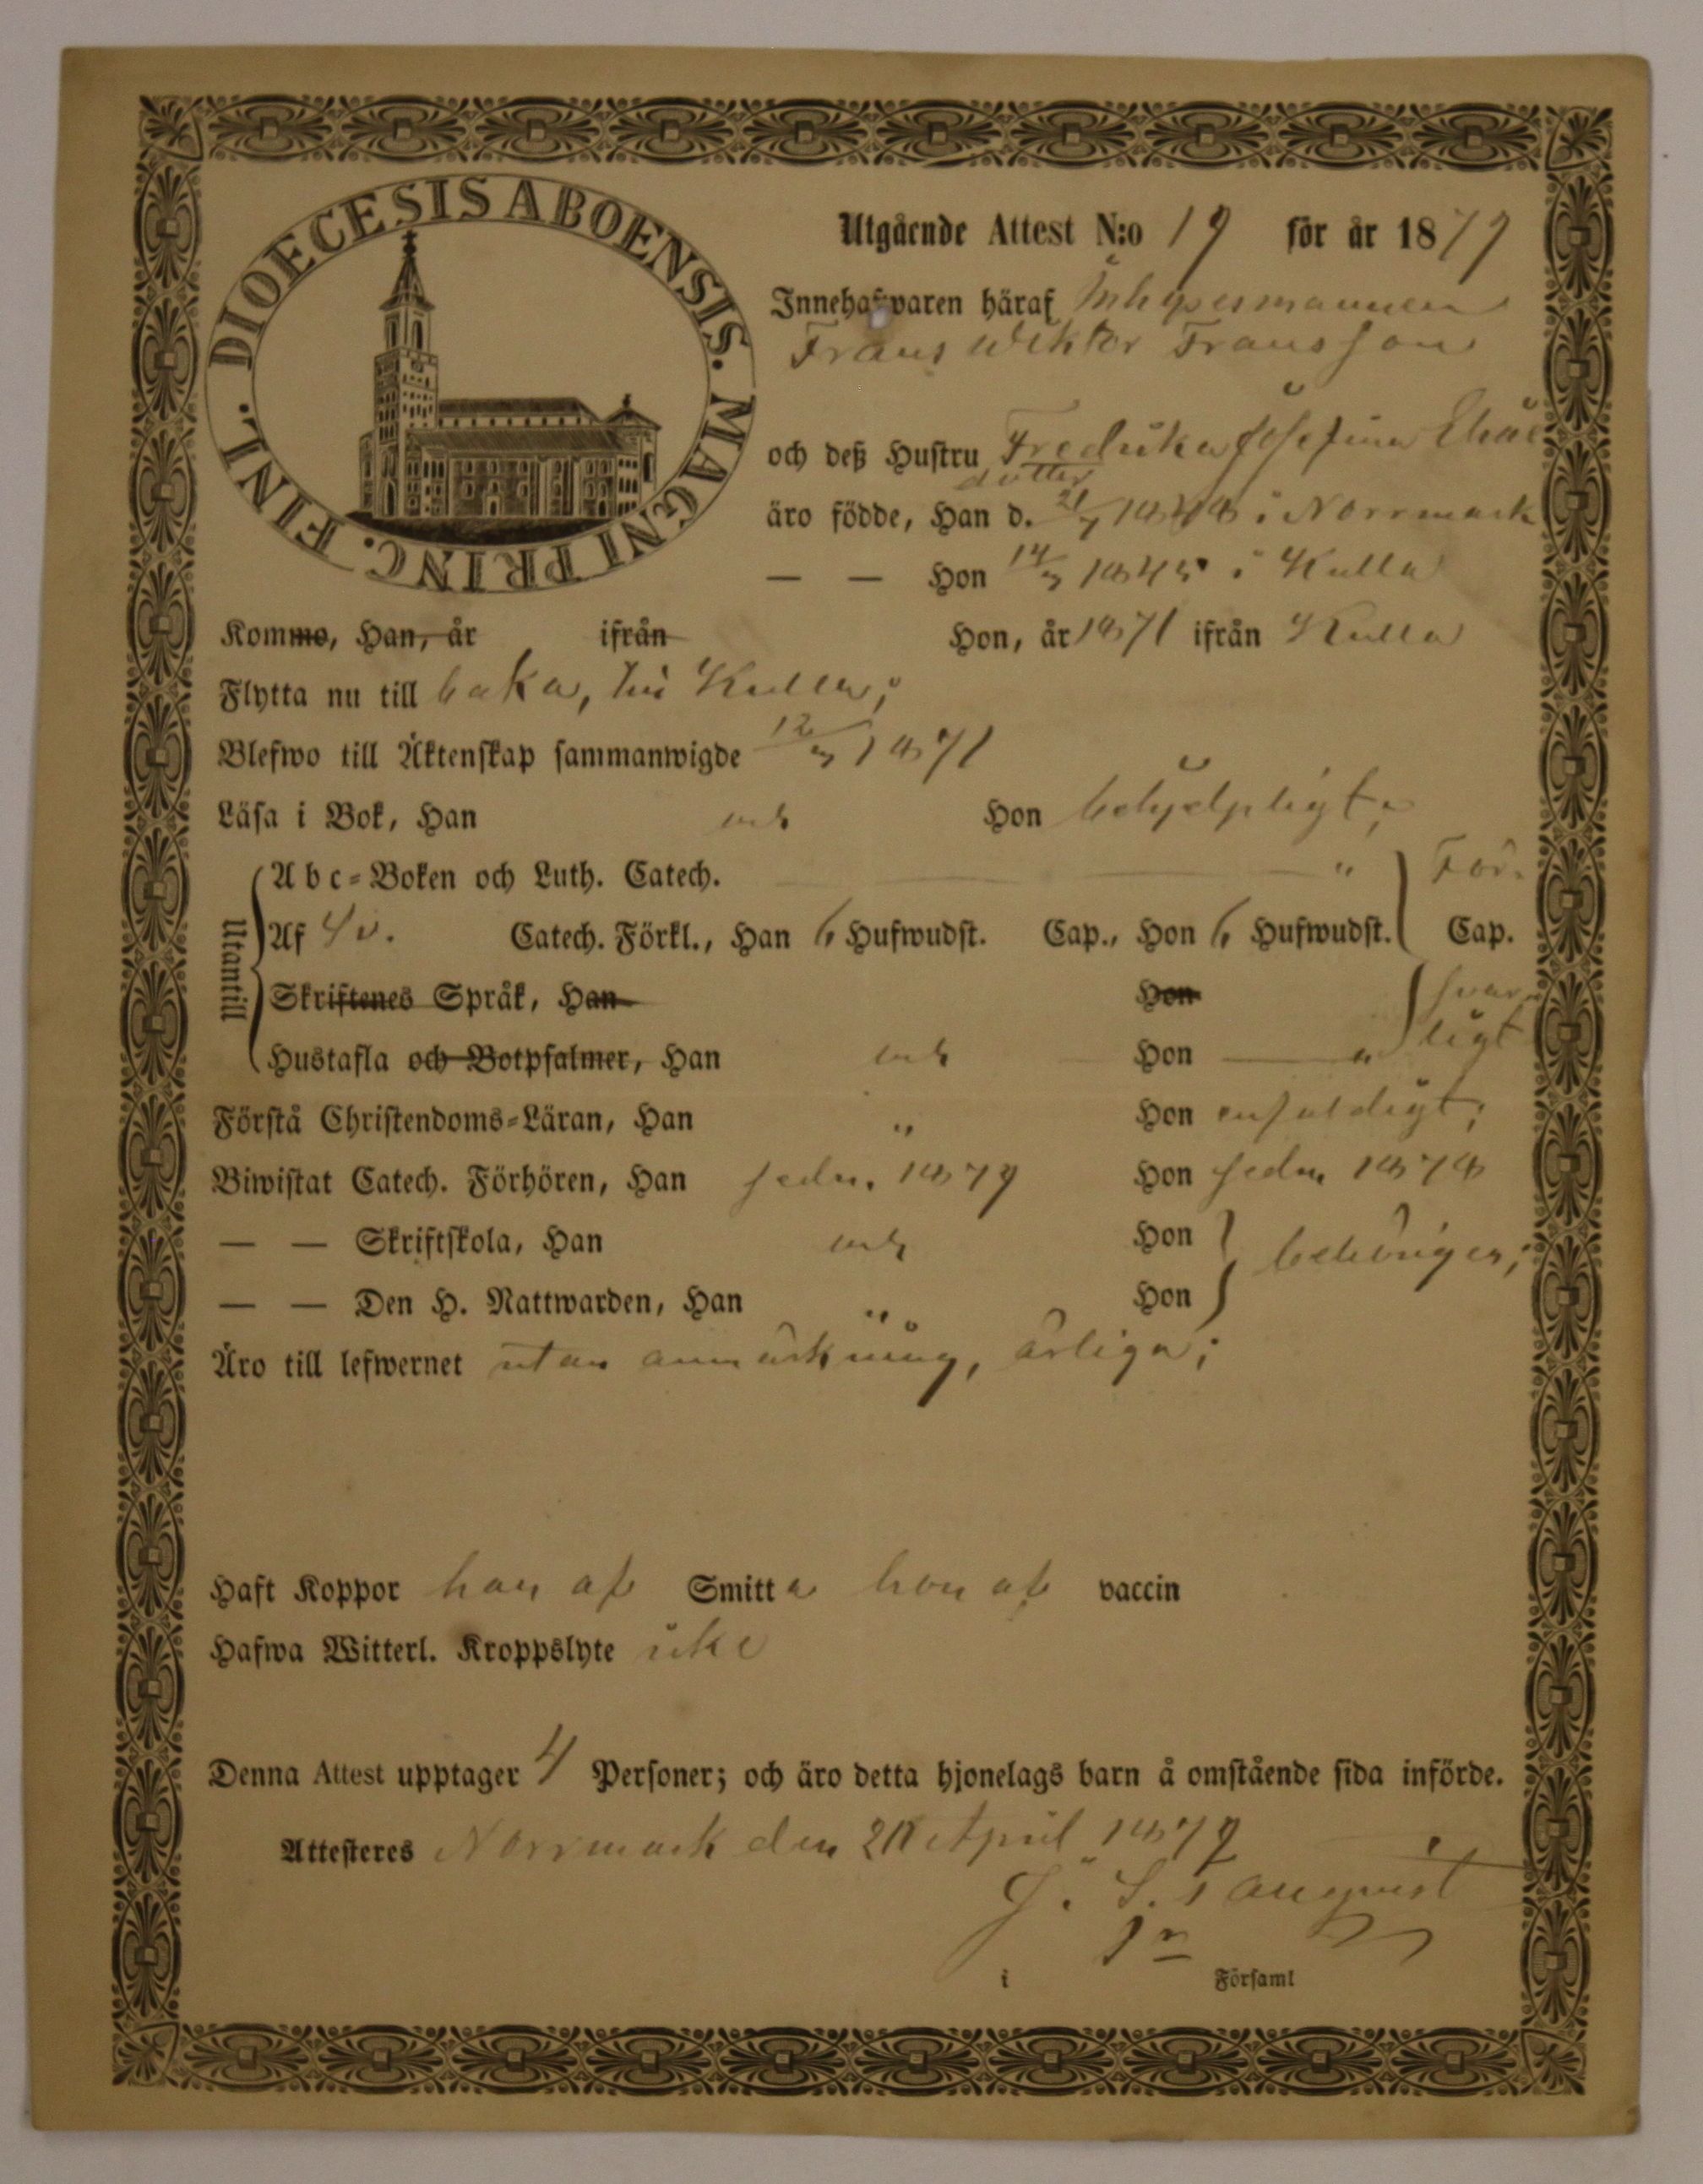 DIOECESIS ABOENSIS. MAGNI PRINC. FINL.
Utgående Attest N:o 19 för år 1879
Innehafwaren häraf Inhysesmannen
Frans Wiktor Fransson
och deß Hustru Fredrika Josefina Elias
dotter
äro födde, Han d. 21/7 1848 i Norrmark
— — Hon 14/3 1845 i Kulla
Komme, Han, år ifrån Hon, år 1871 ifrån Kulla
Flytta nu till baka, till Kulla;
Blefwo till Äktenskap sammanwigde 12/3 1871
Läsa i Bok, Han och Hon behjelpligt;
Utantill
Abc-Boken och Luth. Catech. — — " För.
Af Sv. Catech. Förkl., Han 6 Hufwudst. Cap., Hon 6 Hufwudst. Cap.
Skriftenes Språk, Han Hon svar-
ligt
Hustafla och Botpsalmer, Han och Hon — "
Förstå Christendoms-Läran, Han " Hon enfaldigt;
Biwistat Catech. Förhören, Han sedn. 1879 Hon sedn 1878
— — Skriftskola, Han och Hon behörigen;
— — Den H. Nattwarden, Han " Hon
Äro till lefwernet utan anmärkning, ärliga;
Haft Koppor han af Smitta hon af vaccin
Hafwa Witterl. Kroppslyte icke
Denna Attest upptager 4 Personer; och äro detta hjonelags barn å omstående sida införde.
Attesteres Norrmark den April 1879
i Församl